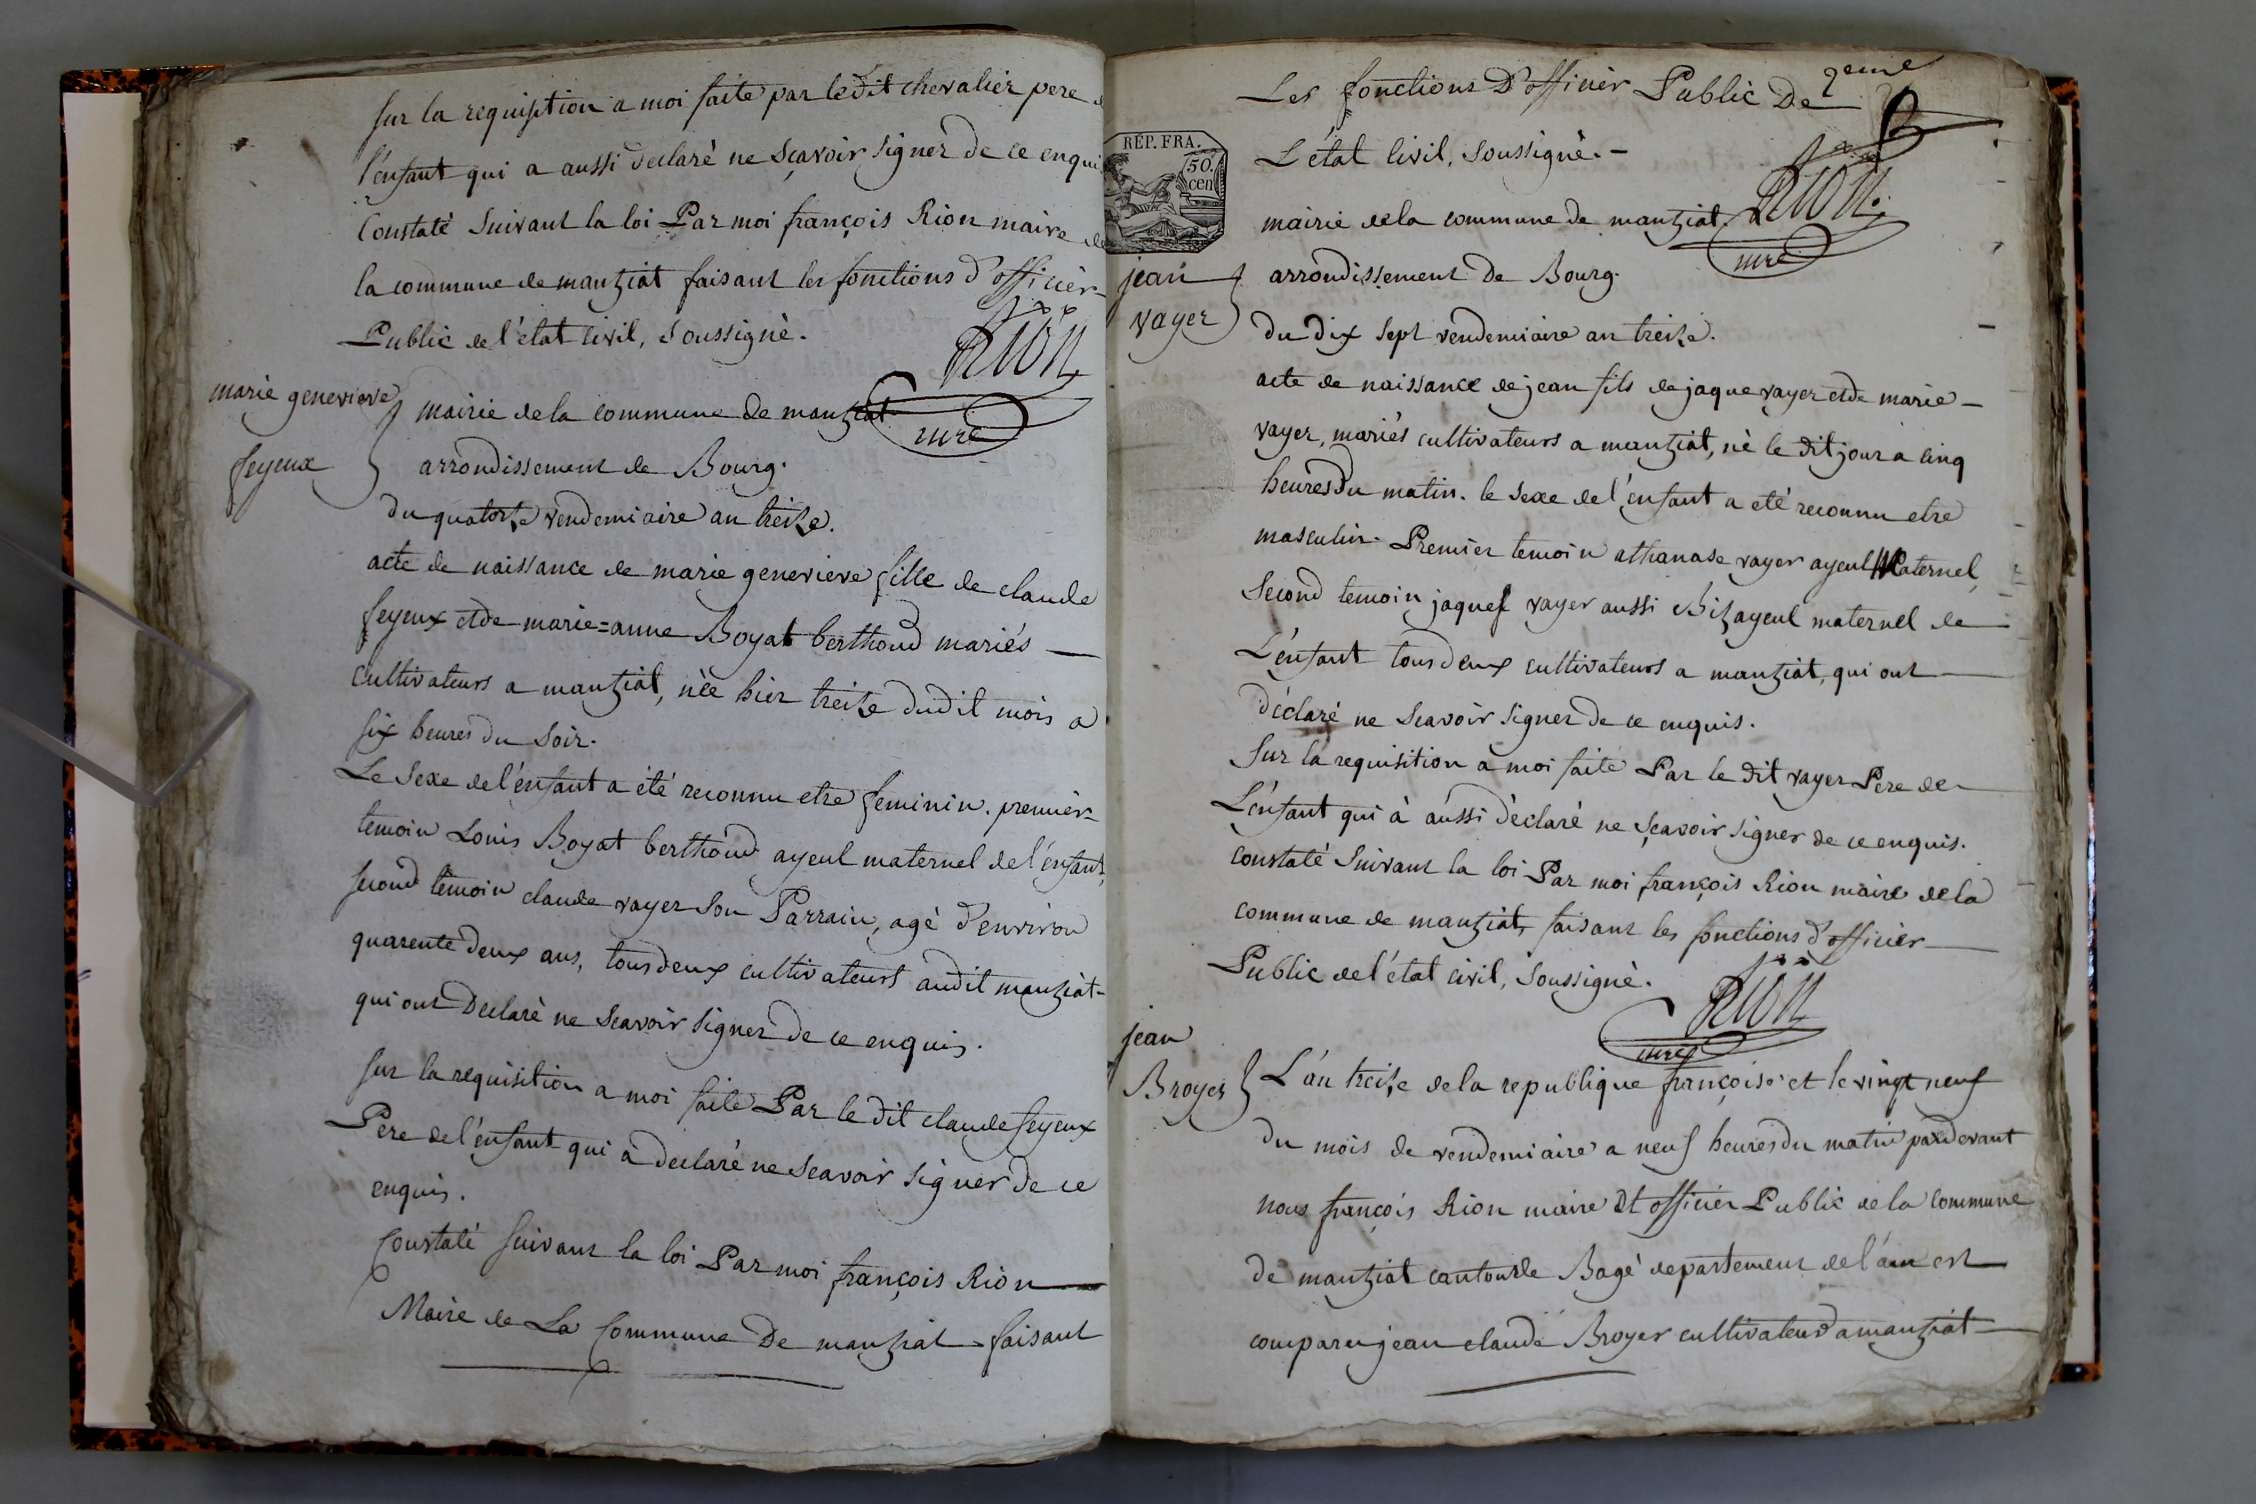 sur la requisition a moi faite par le dit chevalier pere
l'enfant qui a aussi declaré ne sçavoir signer de ce enqui
Constaté suivant la loi Par moi françois Rion maire de
la commune de mantziat faisant les fonctions d'officier
Public de l'état civil, soussigné.
Rion
mre
marie genevieve
feyeux
mairie de la commune de mantziat
arrondissement de Bourg.
du quatorze vendemiaire an treize.
acte de naissance de marie genevieve fille de claude
feyeux et de marie=anne Boyat berthoud mariés
cultivateurs a mantziat, née hier treize dudit mois a
six heures du soir.
Le sexe de l'enfant a été reconnu etre feminin. premier
temoin Louis Boyat berthoud ayeul maternel de l'enfant,
second temoin claude vayer son Parrain, agé d'environ
quarente deux ans, tous deux cultivateurs audit mantziat
qui ont Declaré ne scavoir signer de ce enquis.
sur la requisition a moi faite Par le dit claude feyeux
Pere de l'enfant qui à declaré ne scavoir signer de ce
enquis.
Constaté suivant la loi Par moi françois Rion
Maire de La Commune De mantziat faisant
2eme
Les fonctions D'officier Public De
L'état Civil, soussigné.
RÉP. FRA.
50.
cen
Rion
mre
mairie de la commune de mantziat
jean
vayer
arrondissement De Bourg.
du dix sept vendemiaire an treize.
acte de naissance de jean fils de jaque vayer et de marie
vayer, mariés cultivateurs a mantziat, né le dit jour a cinq
heures du matin. le sexe de l'enfant a eté reconnu etre
masculin. Premier temoin athanase vayer ayeul Maternel,
second temoin jaques vayer aussi Bizayeul maternel de
L'enfant tous deux cultivateurs a mantziat, qui ont
déclaré ne scavoir signer de ce enquis.
sur la requisition a moi faite Par le dit vayer Pere de
L'enfant qui à aussi déclaré ne sçavoir signer de ce enquis.
constaté suivant la loi Par moi françois Rion maire de la
commune de mantziat, faisant les fonctions d'officier
Public de l'état civil, soussigné.
Rion
mre
jean
Broyer
L'an treize de la republique françoise et le vingt neuf
du mois de vendemiaire a neuf heures du matin pardevant
nous françois Rion maire Et officier Public de la commune
de mantziat canton de Bagé departement de l'ain est
comparu jean claude Broyer cultivateur a mantziat